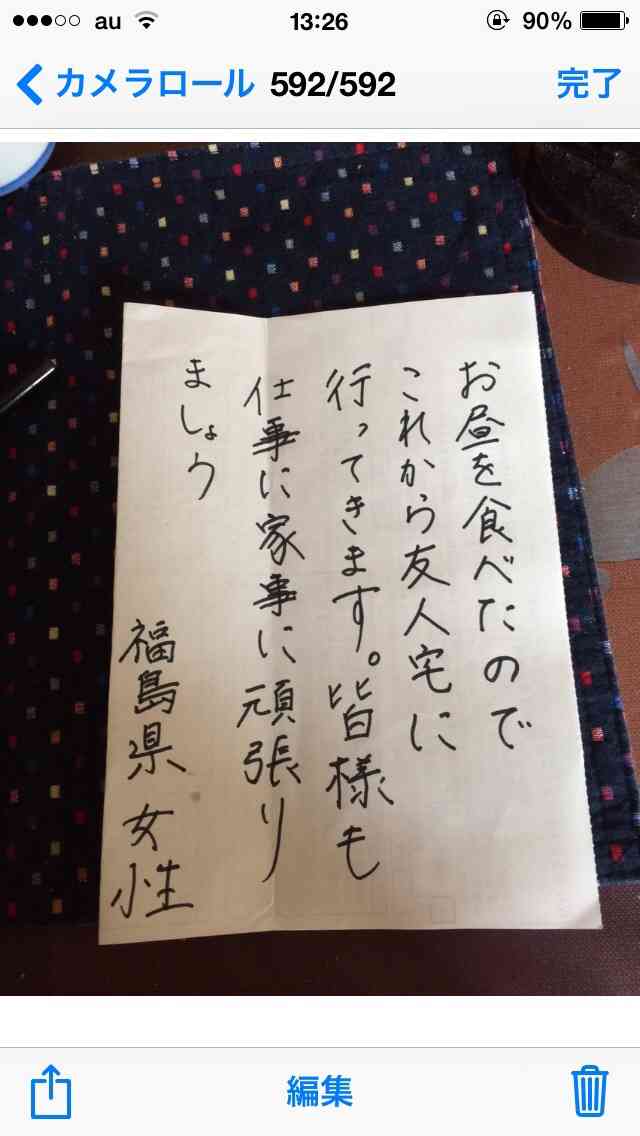 au 13:26 90%
カメラロール 592/592 完了
お昼を食べたので
これから友人宅に
行ってきます。皆様も
仕事に家事に頑張り
ましょう
福島県 女性
編集